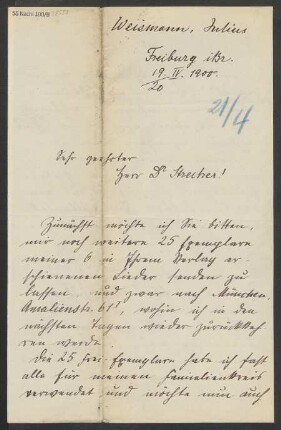 55 Nachl 100/B
Weismann, Julius
Freiburg i Br.
19. IV. 1900.
20
21/4
Sehr geehrter
Herr Dr Strecker!
Zunächst möchte ich Sie bitten,
mir noch weitere 25 Exemplare
meiner 6 in Ihrem Verlag er-
schienenen Lieder senden zu
lassen und zwar nach München
Amalienstr. 61, wohin ich in den
nächsten Tagen wieder zurückkeh
ren werde.
Die 25 frei Exemplare habe ich fast
alle für meinen Familienkreis
verwendet und möchte nun auch